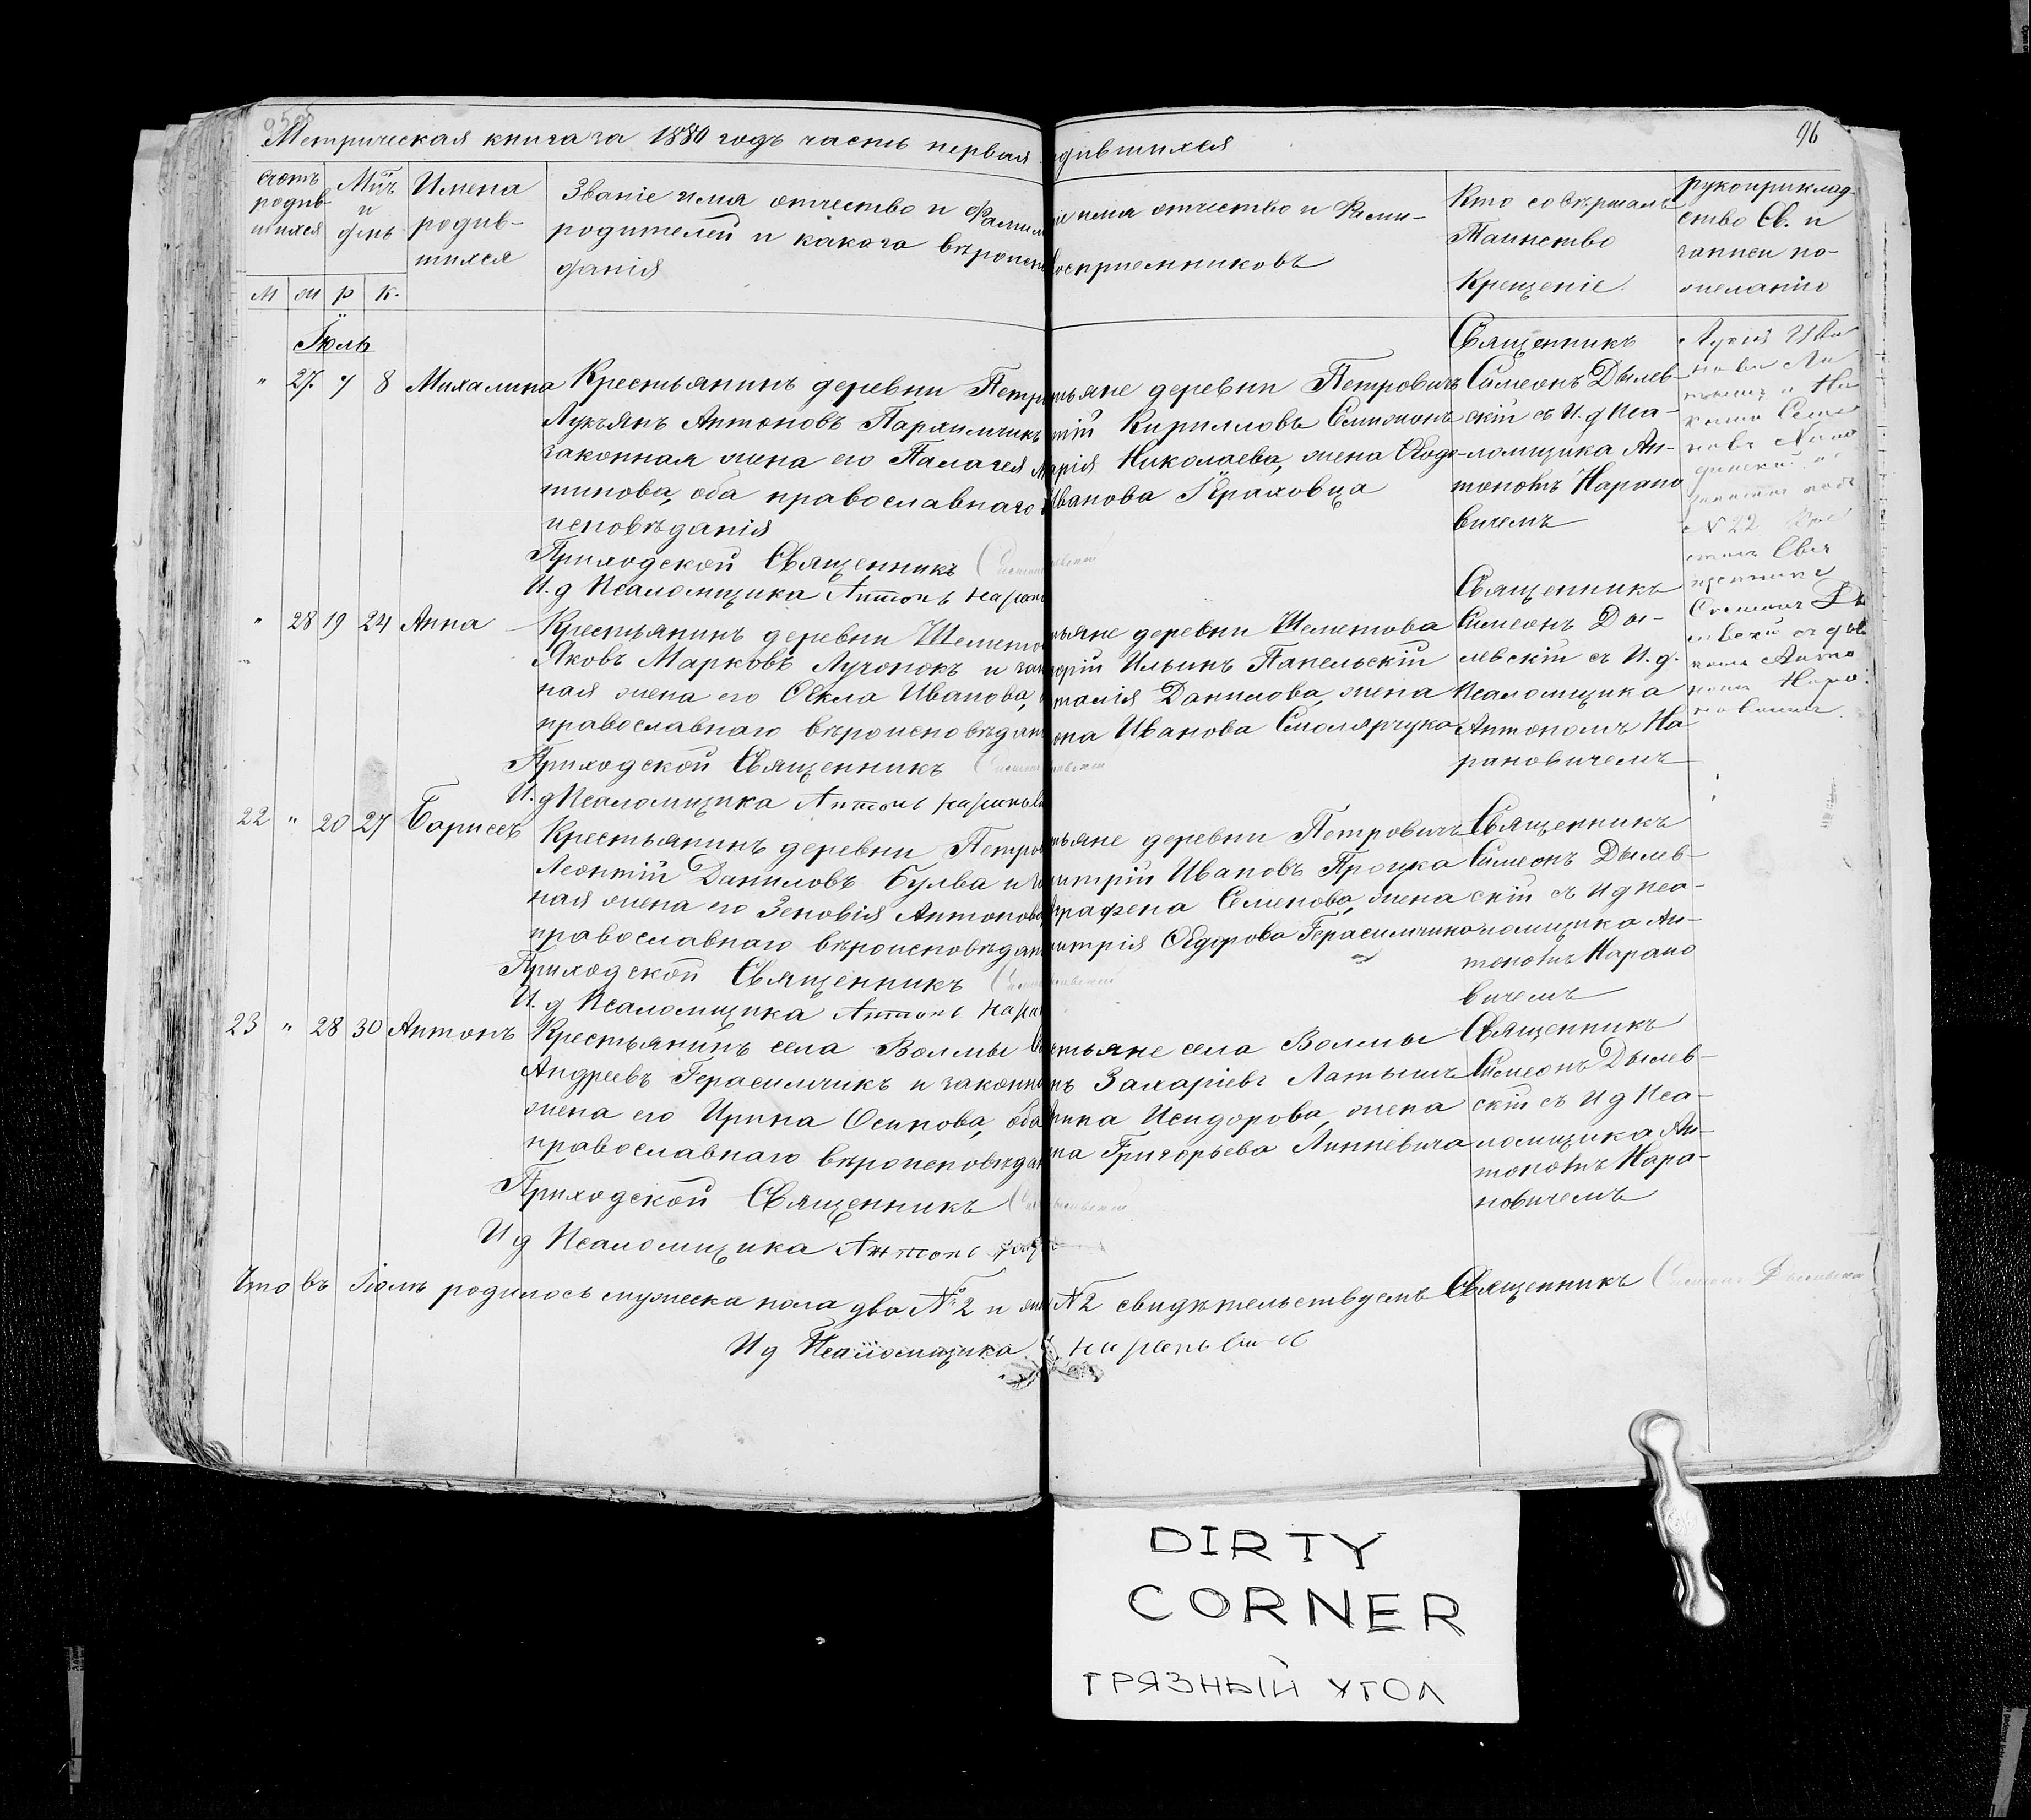 Метрическая книга за 1880 годъ часть первая
дившихся
96
счетъ родив-шихся
Мцъ и день
Имена родив-шихся
Званіе имя отчество и Фамил
родителей и какого вѣроиспо
данія
имя отчество и Фами-
оспріемниковъ
Кто совѣршалъ
Таинство
Крещеніе.
рукоприклад-
ство Св. и
записи по-
желанію
М ж р к.
Іюль
" 27. 7 8 Михалина
Крестьянинъ деревни Петр
Лукъянъ Антоновъ Пархимчикъ
законная жена его Палагея
тинова, оба православнаго
исповѣданія
Приходской Священникъ
И. д Псаломщика Антонъ
тьяне деревни Петровичъ
тій Кирилловъ Селизонъ
арія Николаева, жена Ѳеодо-
Иванова Краховца
Священникъ
Симеонъ Дылев-
скій съ И. д Пса-
ломщика Ан-
тономъ Нарано
вичемъ
" 28 19 24 Анна
Крестьянинъ деревни Шемето
Яковъ Марковъ Лучонокъ и зак
ная жена его Ѳекла Иванова,
православнаго вѣроисповѣдан
Приходской Священникъ
И. д Псаломщика Антонъ
тьяне деревни Шеметова
орій Ильинъ Папельскій
талія Данилова, жена
она Иванова Смолярчука
Священникъ
Симеонъ Ды-
левскій съ И. д.
Псаломщика
Антономъ На
рановичемъ
22 " 20 27 Борисъ
Крестьянинъ деревни Петров
Леонтій Даниловъ Булва и з
ная жена его Зеновія Антонова
православнаго вѣроисповѣдан
Приходской Священникъ
И. д Псаломщика Антонъ
тьяне деревни Петровичъ
митрій Ивановъ Процка
Аграфена Семенова, жена
митрія Ѳедорова Герасимчика
Священникъ
Симеонъ Дылев-
скій съ И д Пса-
ломщика Ан-
тономъ Нарано
вичемъ
23 " 28 30 Антонъ
Крестьянинъ села Волмы
Андреевъ Герасимчикъ и законн
жена его Ирина Осипова, оба
православнаго вѣроисповѣдан
Приходской Священникъ
И д Псаломщика Антонъ
стьяне села Волмы
нъ Захаріевъ Латышъ
рина Исидорова, жена
на Григорьева Линкевича
Священникъ
Симеонъ Дылев-
скій съ И д Пса-
ломщика Ан-
тономъ Нара-
новичемъ
Что въ Іюлѣ родилось мужеска пола два № 2 и жен
№ 2 свидѣтельствуемъ Священникъ
И д Псаломщика
DIRTY
CORNER
ГРЯЗНЫЙ УГОЛ